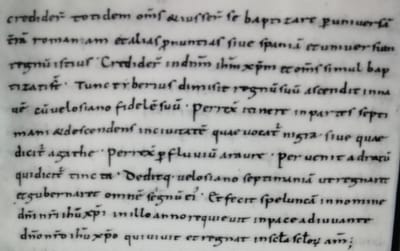 crediderᵗ totidem om̄s & iusserᵗ se baptizare ꝑ uniuersā
t̄rā romaniam et alias ꝓuintias siue spaniā et uniuersum
regnū istius · Credider̄ in dn̄m ih̄m xp̄m et om̄s simul bap
tizati st̄ · Tunc tyberius dimisit regnū suū ascendit in na
uē cū uelosiano fidelē suū · Perrex̄ itinere in partes septi
mani & descendens in ciuitatē quae uocat̄ nigra · siue quae
dicit̄ agathe · Perrex̄ ꝑ fluuiū araure · Peruenit adratū
qui dicit̄ tincta · Deditq; uelosiano septimaniā ut regnare
et gubernaret omnē regnū ei' · Et fecit speluncā in nomine
dn̄i nr̄i ih̄u xp̄i in illo anno requieuit in pace adiuuante
dn̄o nr̄o ih̄u xp̄o qui uiuit et regnat in sc̄la sc̄loꝝ am̄;